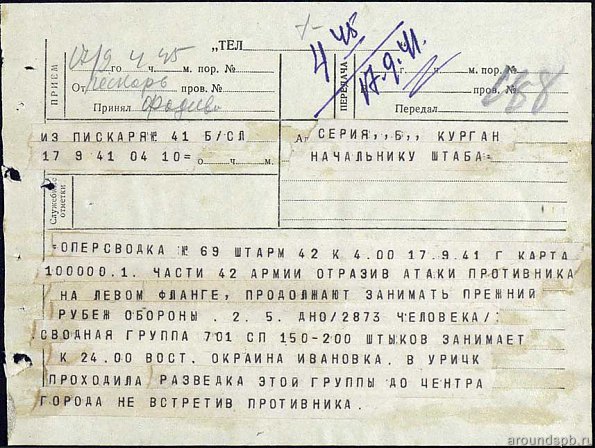 „ТЕЛ
17/9 4 45
ПРИЕМ
го ч. м. пор. №
От Пескарь пров. №
Принял
4 45
17.9.41.
ПЕРЕДАЧА
ч. м. пор. №
пров. №
Передал
ИЗ ПИСКАРЯ№ 41 Б/СЛ
17 9 41 04 10= о ч. м.
Служебные отметки
А СЕРИЯ,,Б,, КУРГАН
НАЧАЛЬНИКУ ШТАБА=
=ОПЕРСВОДКА № 69 ШТАРМ 42 К 4.00 17.9.41 Г КАРТА
100000.1. ЧАСТИ 42 АРМИИ ОТРАЗИВ АТАКИ ПРОТИВНИКА
НА ЛЕВОМ ФЛАНГЕ, ПРОДОЛЖАЮТ ЗАНИМАТЬ ПРЕЖНИЙ
РУБЕЖ ОБОРОНЫ . 2. 5. ДНО/2873 ЧЕЛОВЕКА/:
СВОДНАЯ ГРУППА 701 СП 150-200 ШТЫКОВ ЗАНИМАЕТ
К 24.00 ВОСТ. ОКРАИНА ИВАНОВКА. В УРИЧК
ПРОХОДИЛА РАЗВЕДКА ЭТОЙ ГРУППЫ ДО ЦЕНТРА
ГОРОДА НЕ ВСТРЕТИВ ПРОТИВНИКА.
aroundspb.ru